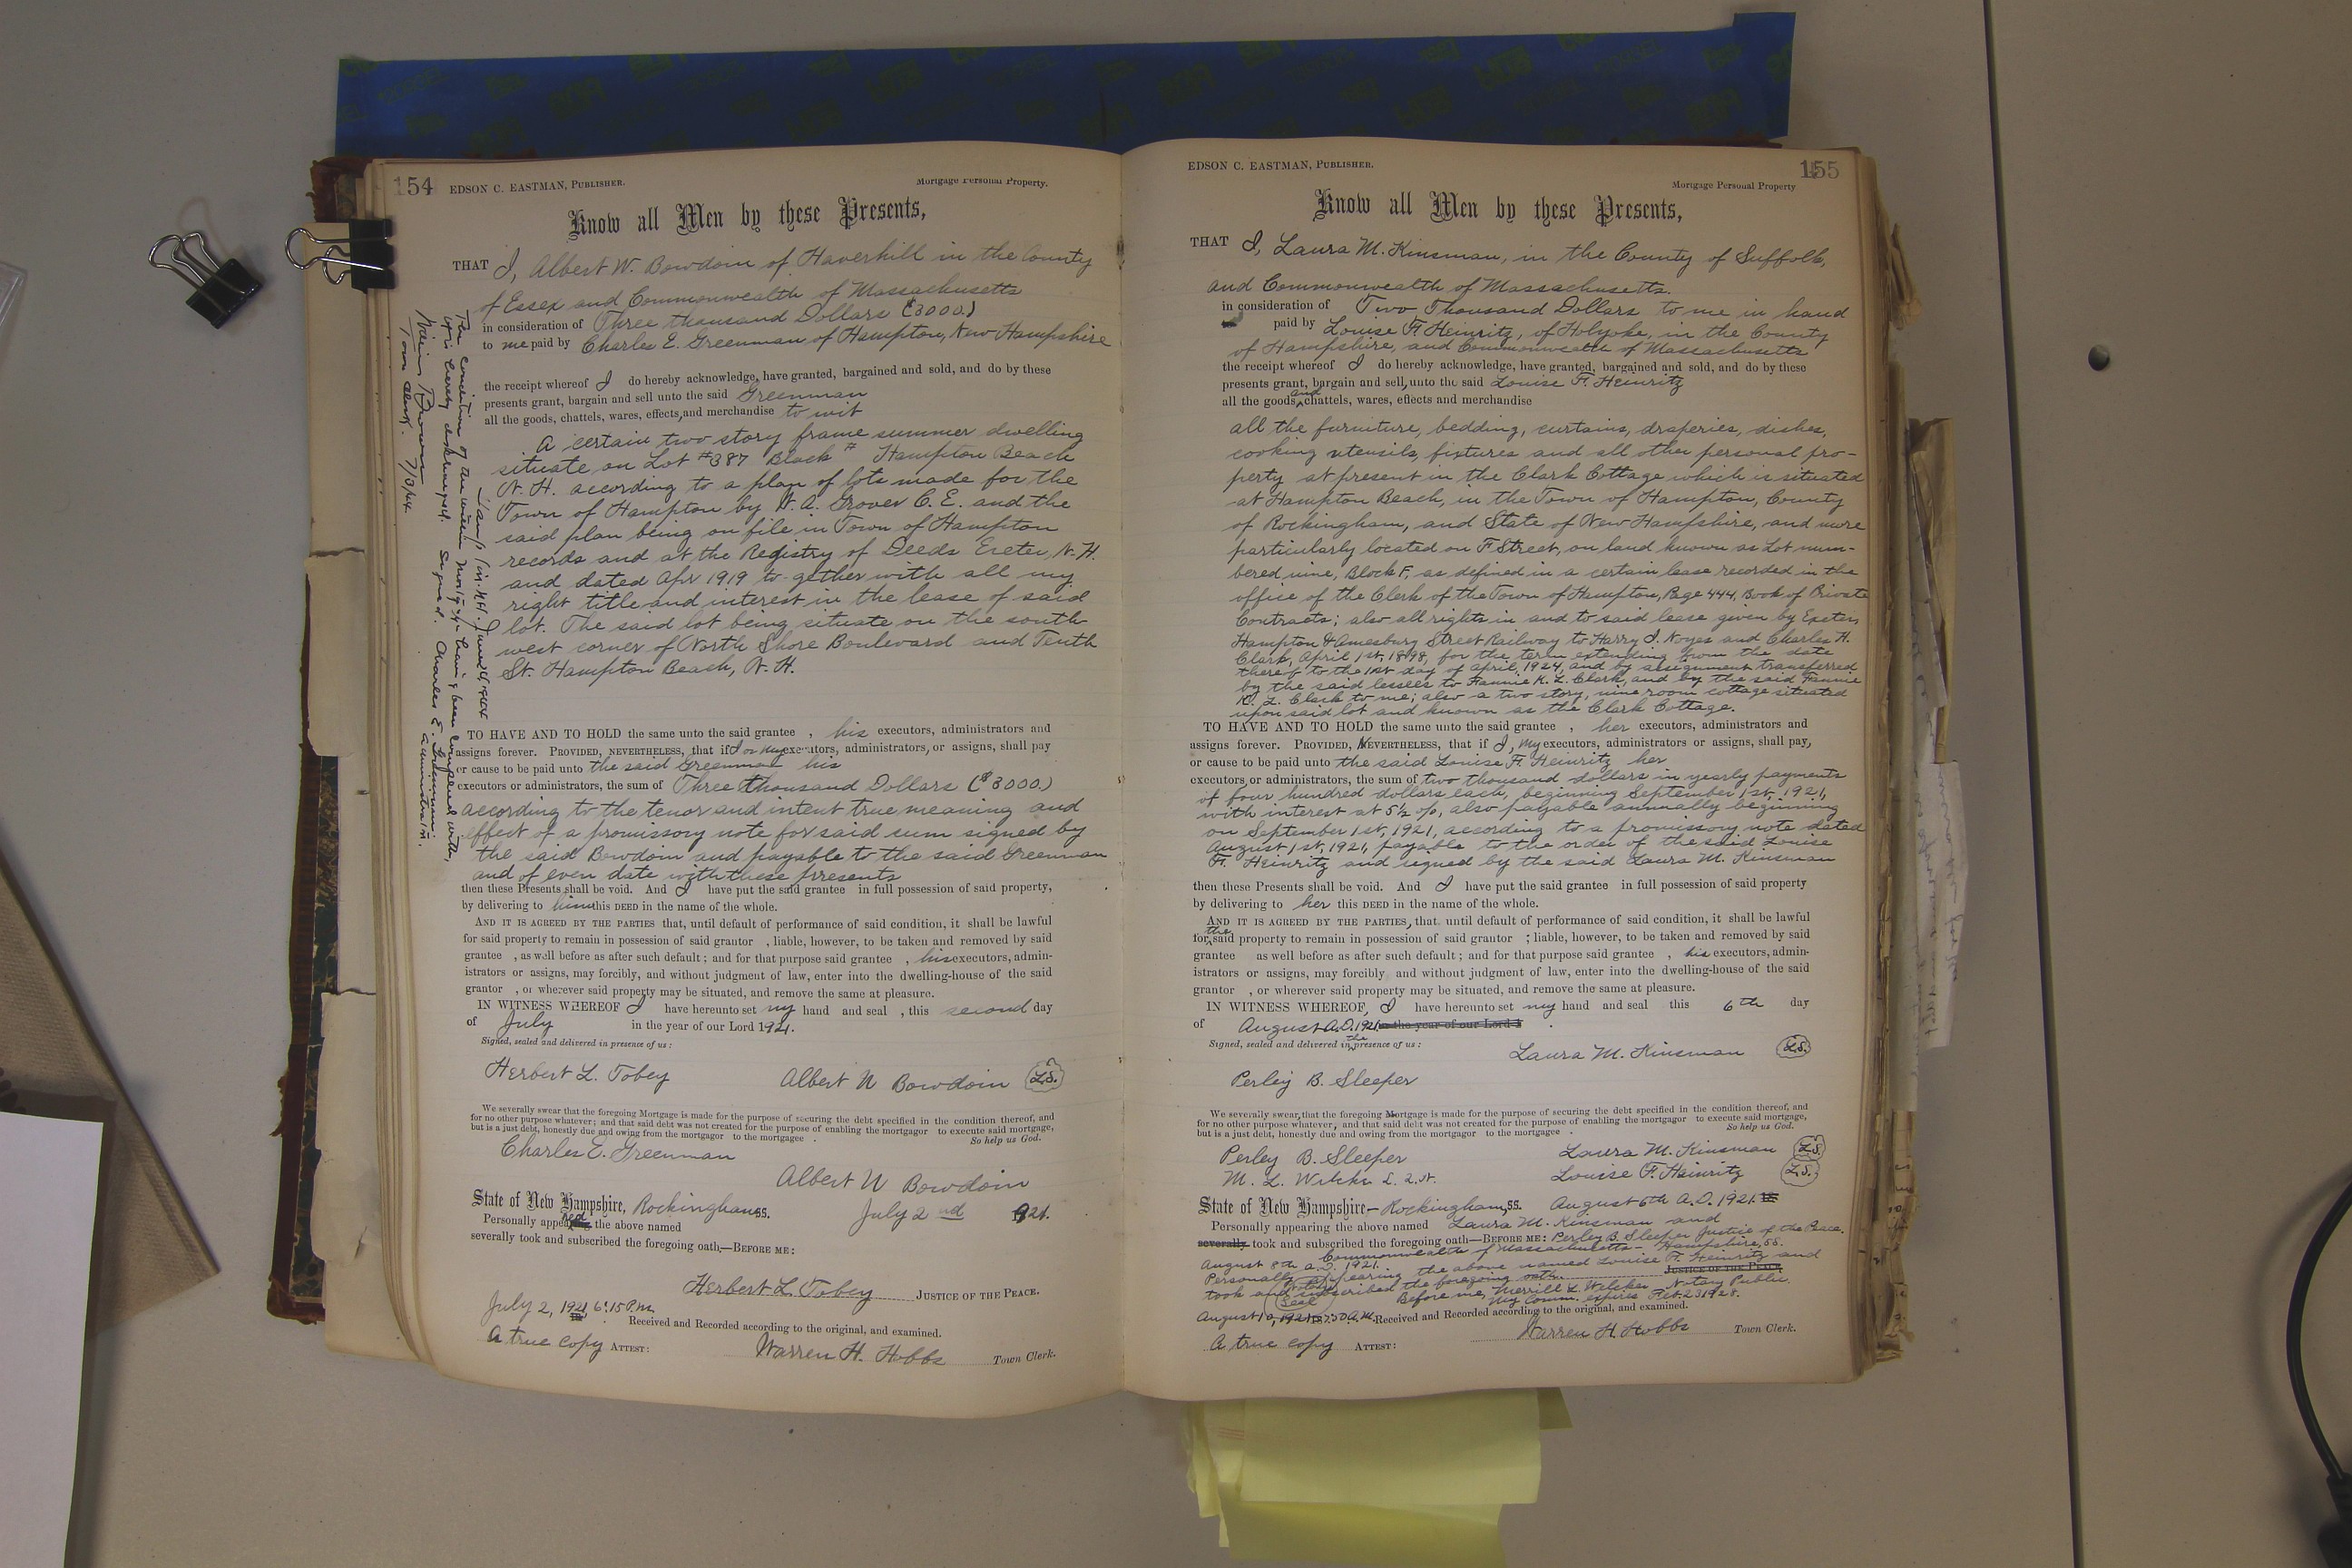 154 EDSON C. EASTMAN, PUBLISHER. Mortgage Personal Property.
Know all Men by these Presents,
THAT I, Albert W. Bowdoin of Haverhill in the County
of Essex and Commonwealth of Massachusetts
in consideration of Three thousand Dollars ($3000.)
to me paid by Charles E. Greenman of Hampton, New Hampshire
the receipt whereof I do hereby acknowledge, have granted, bargained and sold, and do by these
presents grant, bargain and sell unto the said Greenman
all the goods, chattels, wares, effects, and merchandise to wit
A certain two story frame summer dwelling
situate on Lot #387 Block # Hampton Beach
N. H. according to a plan of lots made for the
Town of Hampton by W. A. Grover C. E. and the
said plan being on file in Town of Hampton
records and at the Registry of Deeds Exeter, N. H.
and dated Apr 1919 to-gether with all my
right title and interest in the lease of said
lot. The said lot being situate on the south-
west corner of North Shore Boulevard and Tenth
St. Hampton Beach, N. H.
TO HAVE AND TO HOLD the same unto the said grantee , his executors, administrators and
assigns forever. PROVIDED, NEVERTHELESS, that if I or my executors, administrators, or assigns, shall pay
or cause to be paid unto the said Greenman his
executors or administrators, the sum of Three thousand Dollars ($3000.)
according to the tenor and intent true meaning and
effect of a promissory note for said sum signed by
the said Bowdoin and payable to the said Greenman
and of even date with these presents
then these Presents shall be void. And I have put the said grantee in full possession of said property,
by delivering to him this DEED in the name of the whole.
AND IT IS AGREED BY THE PARTIES that, until default of performance of said condition, it shall be lawful
for said property to remain in possession of said grantor , liable, however, to be taken and removed by said
grantee , as well before as after such default ; and for that purpose said grantee , his executors, admin-
istrators or assigns, may forcibly, and without judgment of law, enter into the dwelling-house of the said
grantor , or wherever said property may be situated, and remove the same at pleasure.
IN WITNESS WHEREOF I have hereunto set my hand and seal , this second day
of July in the year of our Lord 1921.
Signed, sealed and delivered in presence of us :
Herbert L. Tobey Albert W Bowdoin L.S.
We severally swear that the foregoing Mortgage is made for the purpose of securing the debt specified in the condition thereof, and
for no other purpose whatever; and that said debt was not created for the purpose of enabling the mortgagor to execute said mortgage,
but is a just debt, honestly due and owing from the mortgagor to the mortgagee . So help us God.
Charles E. Greenman
Albert W Bowdoin
State of New Hampshire, Rockingham SS. July 2nd 1921.
Personally appeared the above named
severally took and subscribed the foregoing oath—BEFORE ME:
Herbert L. Tobey JUSTICE OF THE PEACE.
July 2, 1921, 6:15 P.m. Received and Recorded according to the original, and examined.
A true copy ATTEST: Warren H. Hobbs Town Clerk.
The condition of the within mortgage having been complied with,
is hereby discharged. Signed. Charles E. Greenman.
Town Clerk.
EDSON C. EASTMAN, PUBLISHER. 155
Mortgage Personal Property
Know all Men by these Presents,
THAT I, Laura M. Kinsman, in the County of Suffolk,
and Commonwealth of Massachusetts.
in consideration of Two Thousand Dollars to me in hand
paid by Louise F. Heinritz, of Holyoke, in the County
of Hampshire, and Commonwealth of Massachusetts
the receipt whereof I do hereby acknowledge, have granted, bargained and sold, and do by these
presents grant, bargain and sell, unto the said Louise F. Heinritz
all the goods, and chattels, wares, effects and merchandise
all the furniture, bedding, curtains, draperies, dishes,
cooking utensils, fixtures and all other personal pro-
perty at present in the Clark Cottage which is situated
at Hampton Beach, in the Town of Hampton, County
of Rockingham, and State of New Hampshire, and more
particularly located on F Street, on land known as Lot num-
bered nine, Block F, as defined in a certain lease recorded in the
office of the Clerk of the Town of Hampton, Page 444, Book of Private
Contracts; also all rights in and to said lease given by Exeter,
Hampton & Amesbury Street Railway to Harry I. Noyes and Charles H.
Clark, April 1st, 1898, for the term extending from the date
thereof to the 1st day of April, 1924, and by assignment transferred
by the said lessees to Fannie K. L. Clark, and by the said Fannie
K. L. Clark to me; also a two story, nine room cottage situated
upon said lot and known as the Clark Cottage.
TO HAVE AND TO HOLD the same unto the said grantee , her executors, administrators and
assigns forever. PROVIDED, NEVERTHELESS, that if I, my executors, administrators or assigns, shall pay,
or cause to be paid unto the said Louise F. Heinritz her
executors, or administrators, the sum of two thousand dollars in yearly payments
of four hundred dollars each, beginning September 1st, 1921,
with interest at 5½ %, also payable annually beginning
on September 1st, 1921, according to a promissory note dated
August 1st, 1921, payable to the order of the said Louise
F. Heinritz and signed by the said Laura M. Kinsman
then these Presents shall be void. And I have put the said grantee in full possession of said property
by delivering to her this DEED in the name of the whole.
AND IT IS AGREED BY THE PARTIES, that until default of performance of said condition, it shall be lawful
for the said property to remain in possession of said grantor ; liable, however, to be taken and removed by said
grantee as well before as after such default ; and for that purpose said grantee , his executors, admin-
istrators or assigns, may forcibly and without judgment of law, enter into the dwelling-house of the said
grantor , or wherever said property may be situated, and remove the same at pleasure.
IN WITNESS WHEREOF, I have hereunto set my hand and seal this 6th day
of August A.D. 1921 in the year of our Lord 1 .
Signed, sealed and delivered in the presence of us :
Laura M. Kinsman L.S.
Perley B. Sleeper
We severally swear, that the foregoing Mortgage is made for the purpose of securing the debt specified in the condition thereof, and
for no other purpose whatever, and that said debt was not created for the purpose of enabling the mortgagor to execute said mortgage,
but is a just debt, honestly due and owing from the mortgagor to the mortgagee . So help us God.
Perley B. Sleeper Laura M. Kinsman L.S.
M. L. Welcker Louise F. Heinritz L.S.
State of New Hampshire— Rockingham, SS. August 6th A.D. 1921.
Personally appearing the above named Laura M. Kinsman and
severally took and subscribed the foregoing oath—BEFORE ME: Perley B. Sleeper Justice of the Peace.
Commonwealth of Massachusetts— Hampshire, SS.
August 8th A.D. 1921.
Personally appearing the above named Louise F. Heinritz and
took and subscribed the foregoing oath JUSTICE OF THE PEACE
Before me, Merrill L. Welcker Notary Public.
Notary Seal My Comm. expires Feb. 23 1928.
August 10, 1921 Received and Recorded according to the original, and examined.
A true copy ATTEST: Warren H. Hobbs Town Clerk.